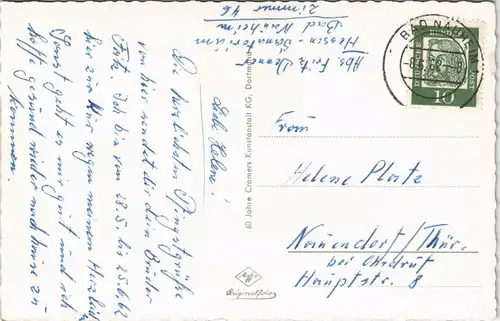 Abs. Fritz Denner
Hessen-Sanatorium
Bad Nauheim
Zimmer 46
BAD NAUHEIM
10
Liebe Helene!
Die herzlichsten Pfingstgrüße
von hier sendet dir dein Bruder
Fritz. Ich bin vom 28.5. bis 25.6.62
hier zur Kur wegen meinem Herzleiden
Sonst geht es mir gut und ich
hoffe gesund wieder nach hause zu
kommen.
60 Jahre Cramers Kunstanstalt KG, Dortmund
Originalfoto
Frau
Helene Platz
Nauendorf/Thür.
bei Ohrdruf
Hauptstr. 8